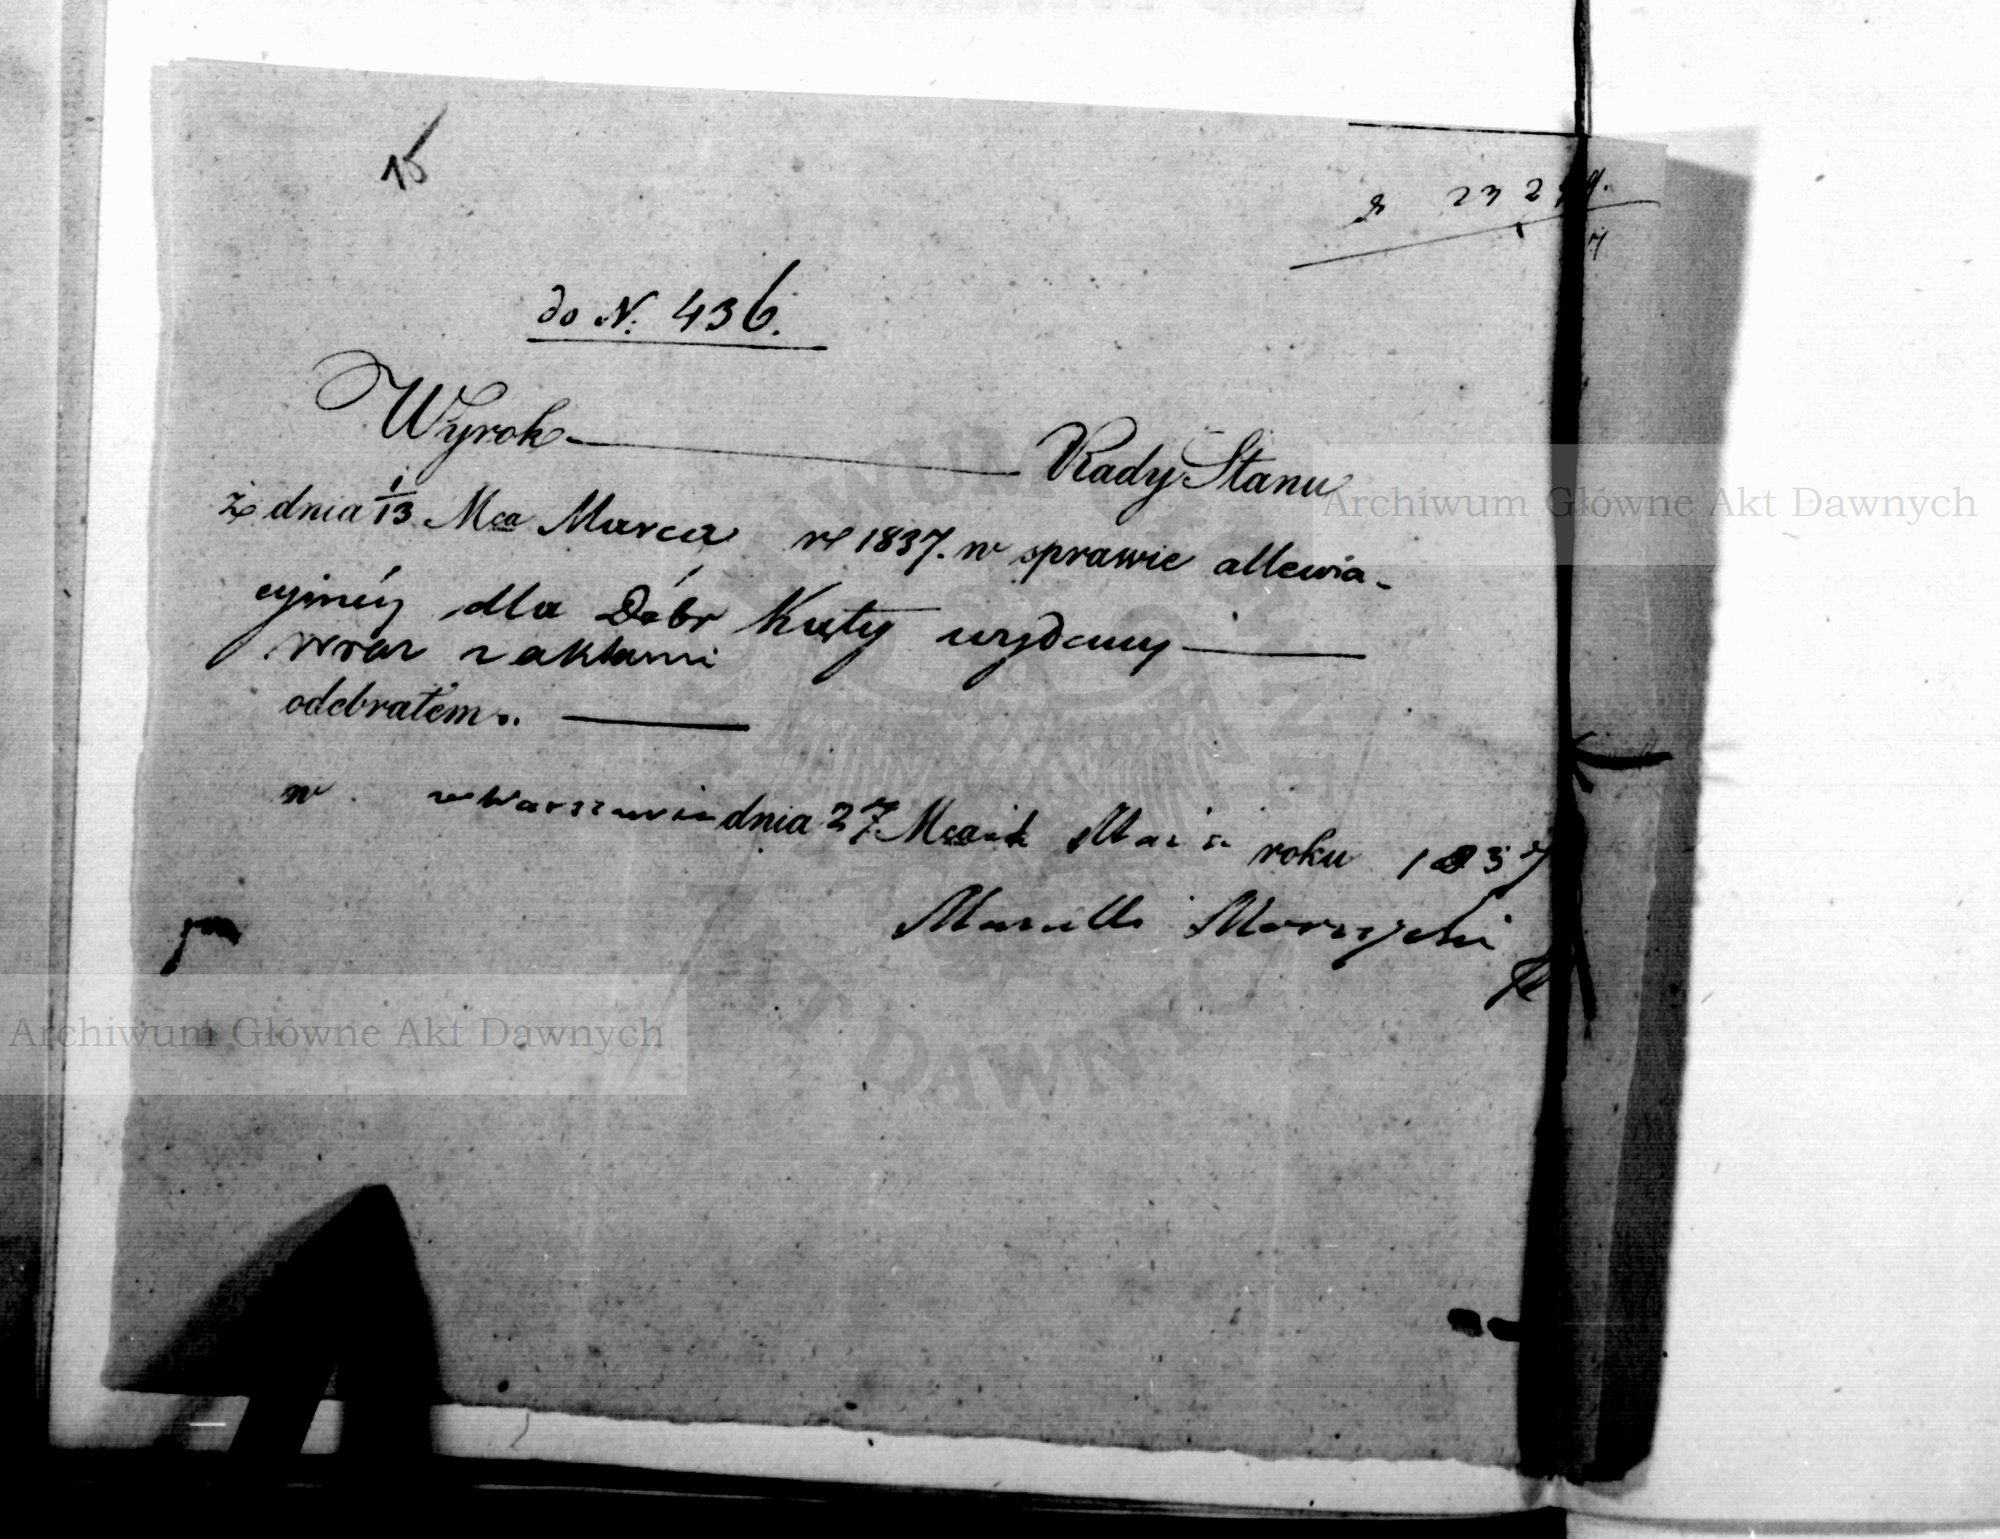 15
23 2
do N. 436.
Wyrok Rady Stanu
z dnia 1/13 Mca Marca r 1837. w sprawie allewia-
cyjnéj dla Dóbr Kuty wydany
wraz z aktami
odebrałem.
w w Warszawie dnia 27 Mca Maia roku 1837
Marcelli
Archiwum Główne Akt Dawnych
Archiwum Główne Akt Dawnych
AKT DAWNYCH